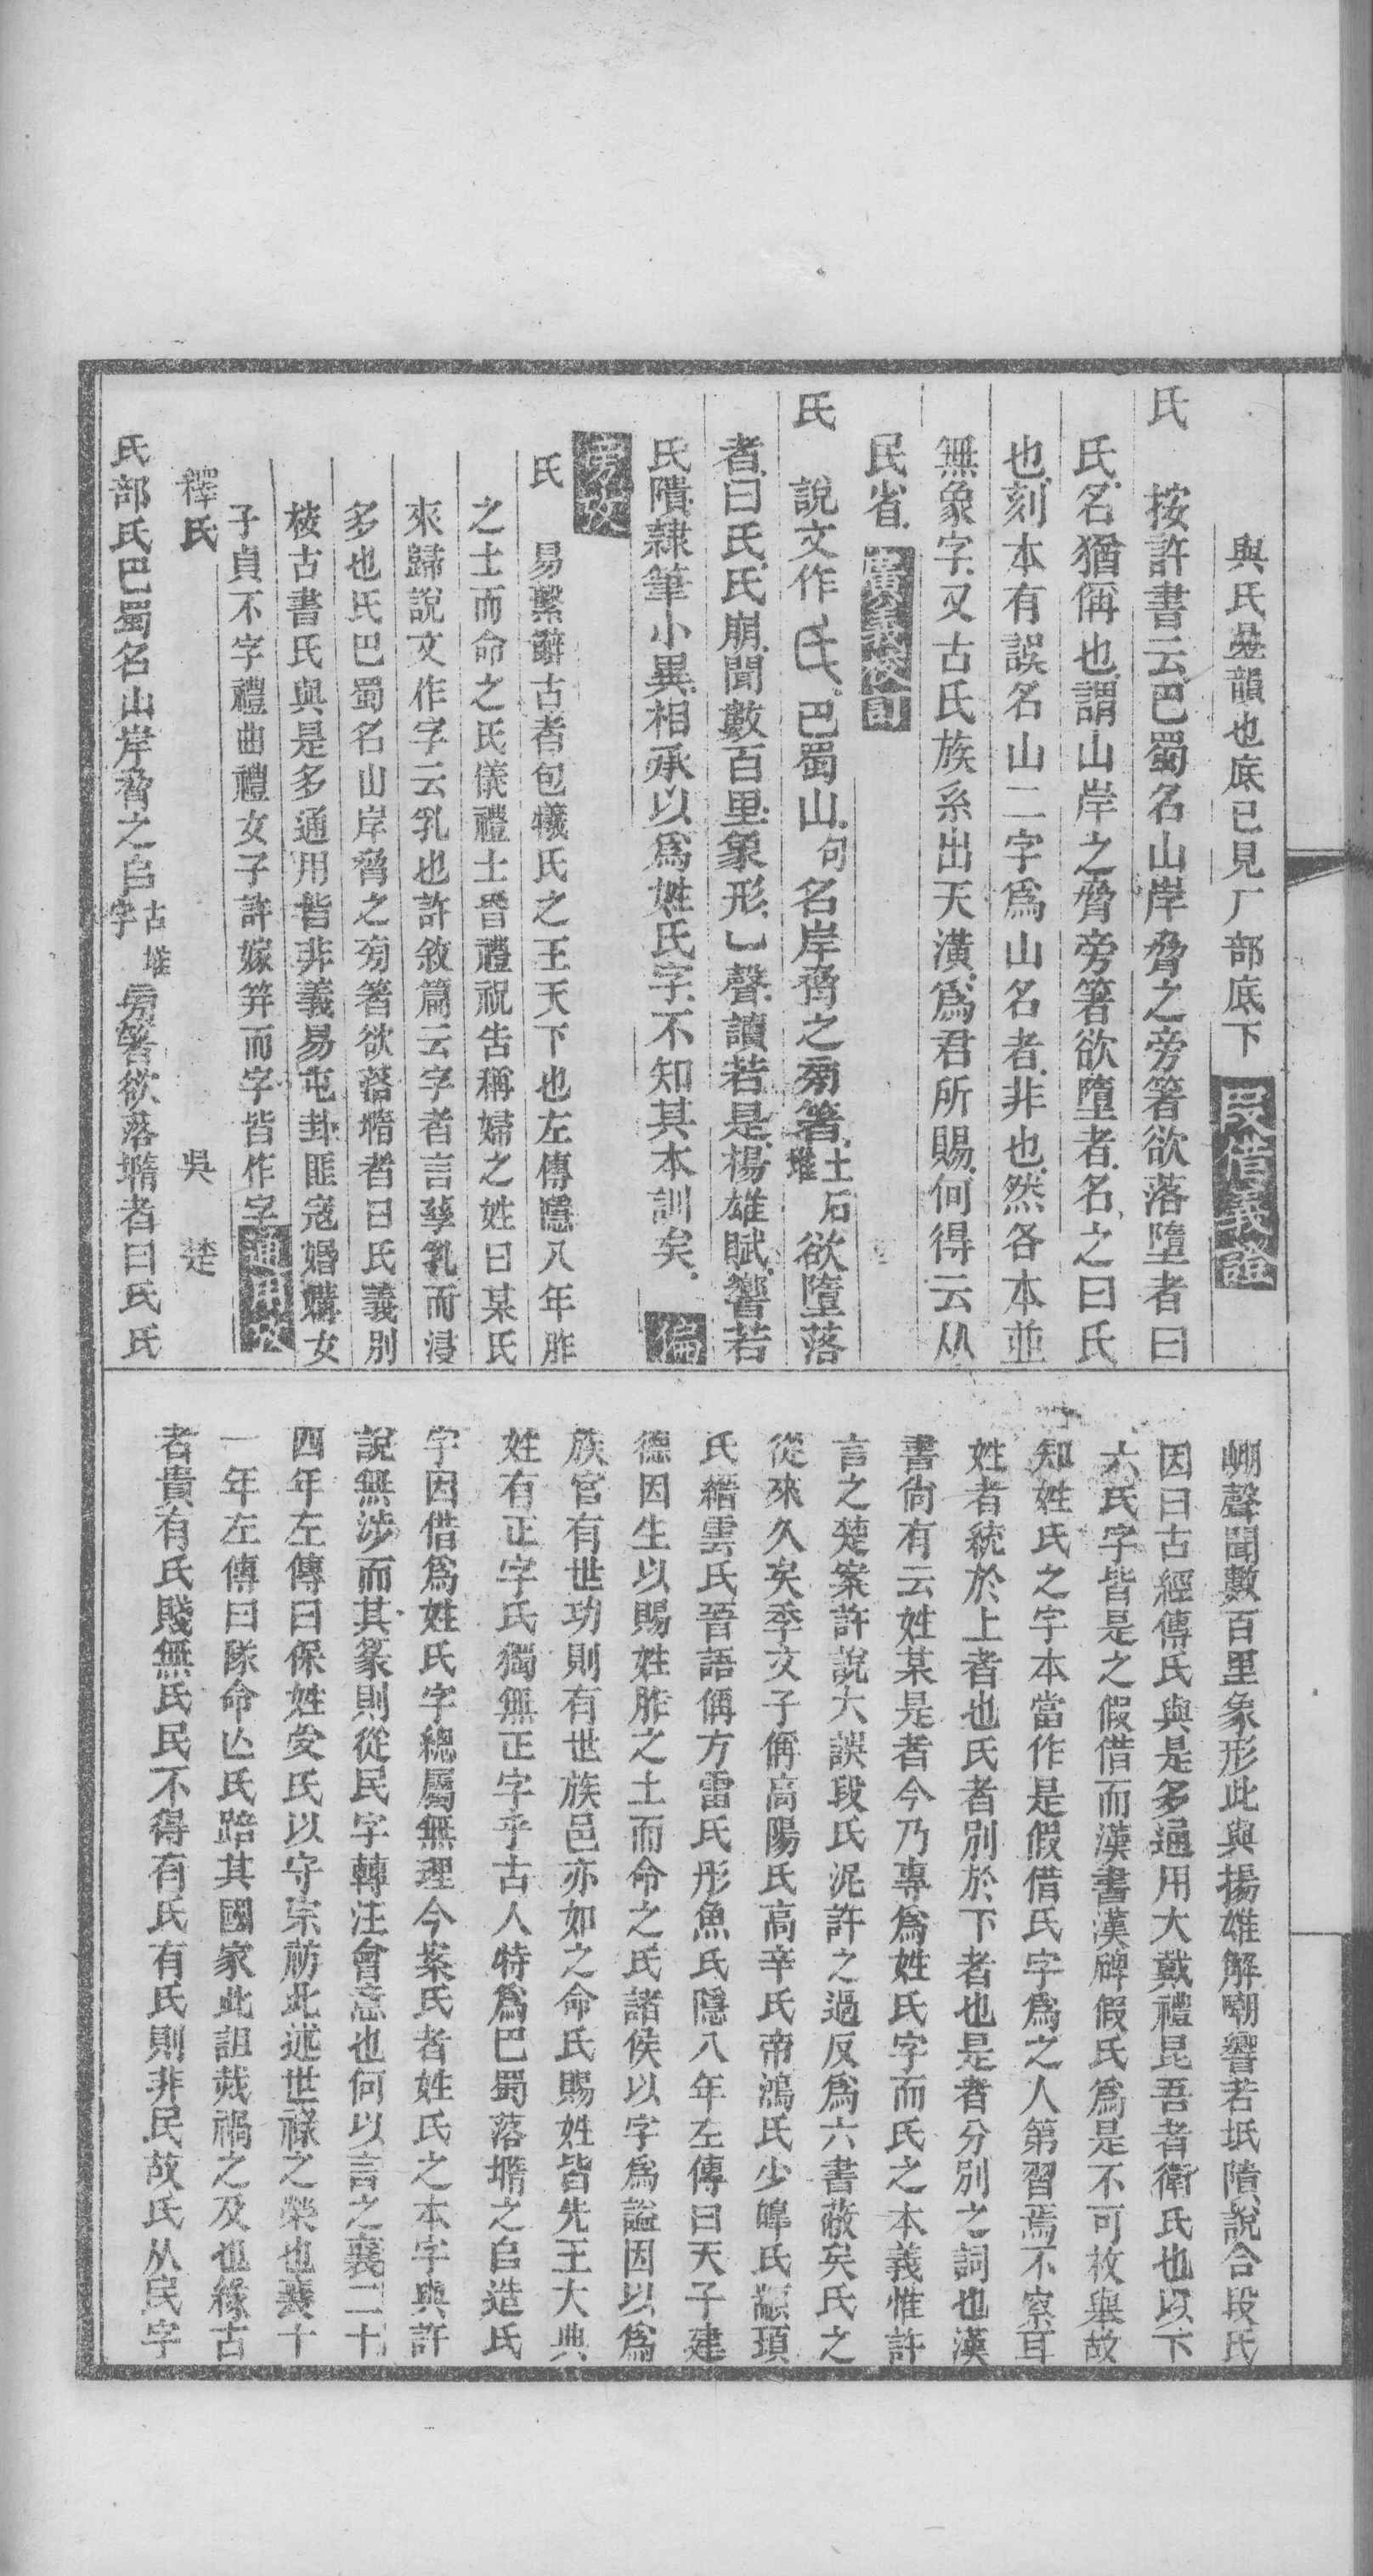 與氏疊韻也底已見厂部底下　段借義證
氏　按許書云巴蜀名山岸脅之旁箸欲落墮者曰
氏名猶偁也謂山岸之脅旁箸欲墮者名之曰氏
也刻本有誤名山二字爲山名者非也然各本並
無象字又古氏族系出天潢爲君所賜何得云从
民省　廣義校訂
氏　說文作氏巴蜀山句名岸脅之旁箸土石堆欲墮落
者曰氏氏崩聞數百里象形乁聲讀若是楊雄賦響若
氏隤隸筆小異相承以爲姓氏字不知其本訓矣　偏
旁攷
氏　易繫辭古者包犧氏之王天下也左傳隱八年胙
之土而命之氏儀禮士昏禮祝告稱婦之姓曰某氏
來歸說文作字云乳也許敘篇云字者言孳乳而浸
多也氏巴蜀名山岸脅之旁箸欲落墮者曰氏義別
桉古書氏與是多通用皆非義易屯卦匪寇婚媾女
子貞不字禮曲禮女子許嫁筓而字皆作字　通用攷
釋氏　吳　楚
氏部氏巴蜀名山岸脅之𠂤古堆字旁箸欲落墮者曰氏氏
崩聲聞數百里象形此與揚雄解嘲響若坻隤說合段氏
因曰古經傳氏與是多通用大戴禮昆吾者衛氏也以下
六氏字皆是之假借而漢書漢碑假氏爲是不可枚舉故
知姓氏之字本當作是假借氏字爲之人第習焉不察耳
姓者統於上者也氏者別於下者也是者分別之詞也漢
書尙有云姓某是者今乃專爲姓氏字而氏之本義惟許
言之楚案許說大誤段氏泥許之過反爲六書蔽矣氏之
從來久矣季文子偁高陽氏高辛氏帝鴻氏少皞氏顓頊
氏縉雲氏晉語偁方雷氏彤魚氏隱八年左傳曰天子建
德因生以賜姓胙之土而命之氏諸侯以字爲謚因以爲
族官有世功則有世族邑亦如之命氏賜姓皆先王大典
姓有正字氏獨無正字乎古人特爲巴蜀落墮之𠂤造氏
字因借爲姓氏字總屬無理今案氏者姓氏之本字與許
說無涉而其篆則從民字轉注會意也何以言之襄二十
四年左傳曰保姓受氏以守宗祊此述世祿之榮也襄十
一年左傳曰隊命亾氏踣其國家此詛烖禍之及也緣古
者貴有氏賤無氏民不得有氏有氏則非民故氏从民字